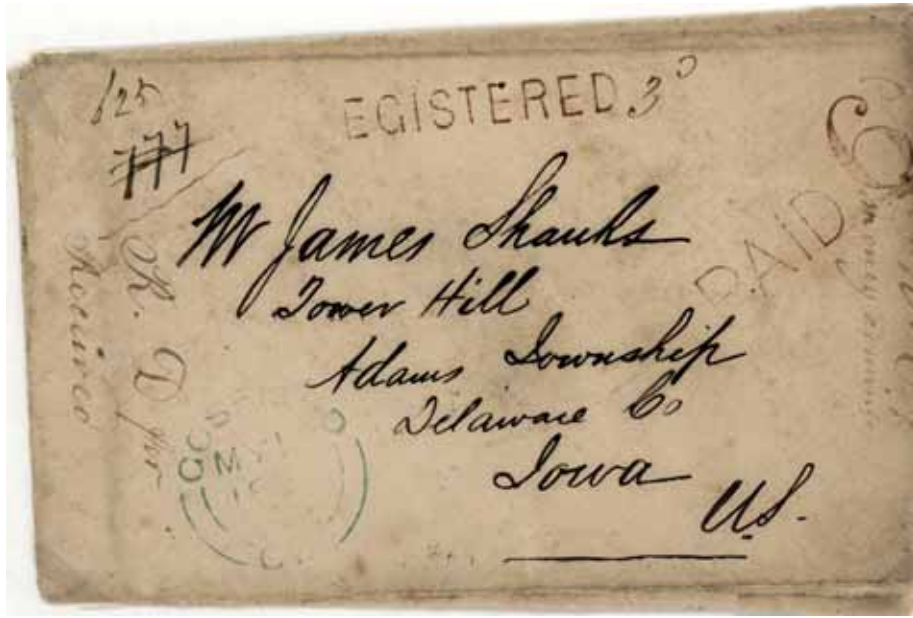 125
777
EGISTERED 3
PAID 6
Mr James Shanks
Tower Hill
Adams Township
Delaware Co
Iowa
U.S.
R. D
Received
GO
M